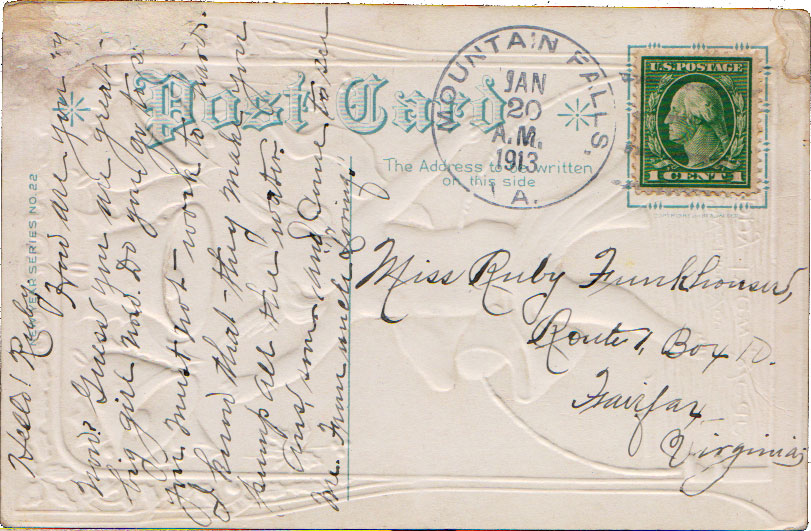 Post Card
MOUNTAIN FALLS,
JAN
20
A.M.
1913
A.
U.S. POSTAGE
1 CENT 1
The Address to be written
on this side
NEW YEAR SERIES NO. 22
Miss Ruby Funkhouser,
Route 1, Box 10.
Fairfax
Virginia,
Hello! Ruby
How are you
now? Guess you are great-
big girl now. Do you go to s
You must not work to hard.
I know that they make you
pump all the water.
Ans, some and come to see
me. From uncle Loring.